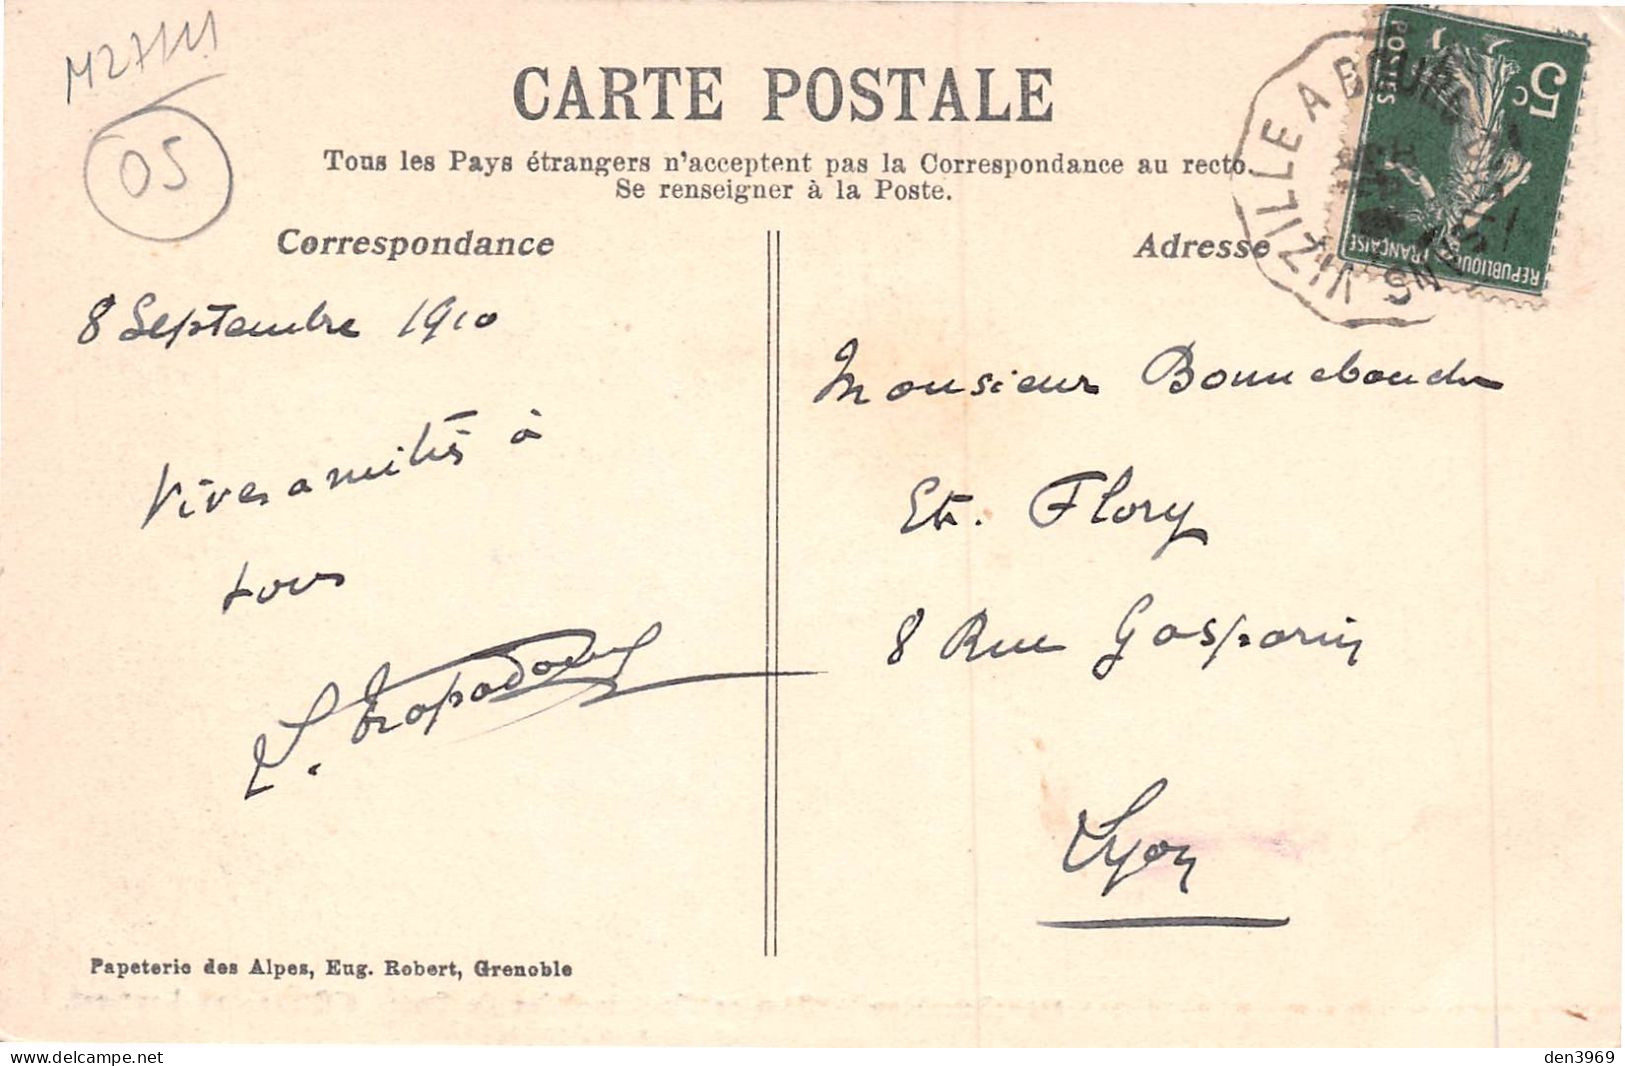 M27111
05
CARTE POSTALE
Tous les Pays étrangers n'acceptent pas la Correspondance au recto.
Se renseigner à la Poste.
Correspondance
Adresse
POSTES
5c
REPUBLIQUE FRANÇAISE
VIZILLE A BOURG
8 Septembre 1910
Vives amitiés à
tous
Monsieur
Et. Flory
8 Rue Gasparin
Lyon
Papeterie des Alpes, Eug. Robert, Grenoble
https://www.delcampe.net
den3969